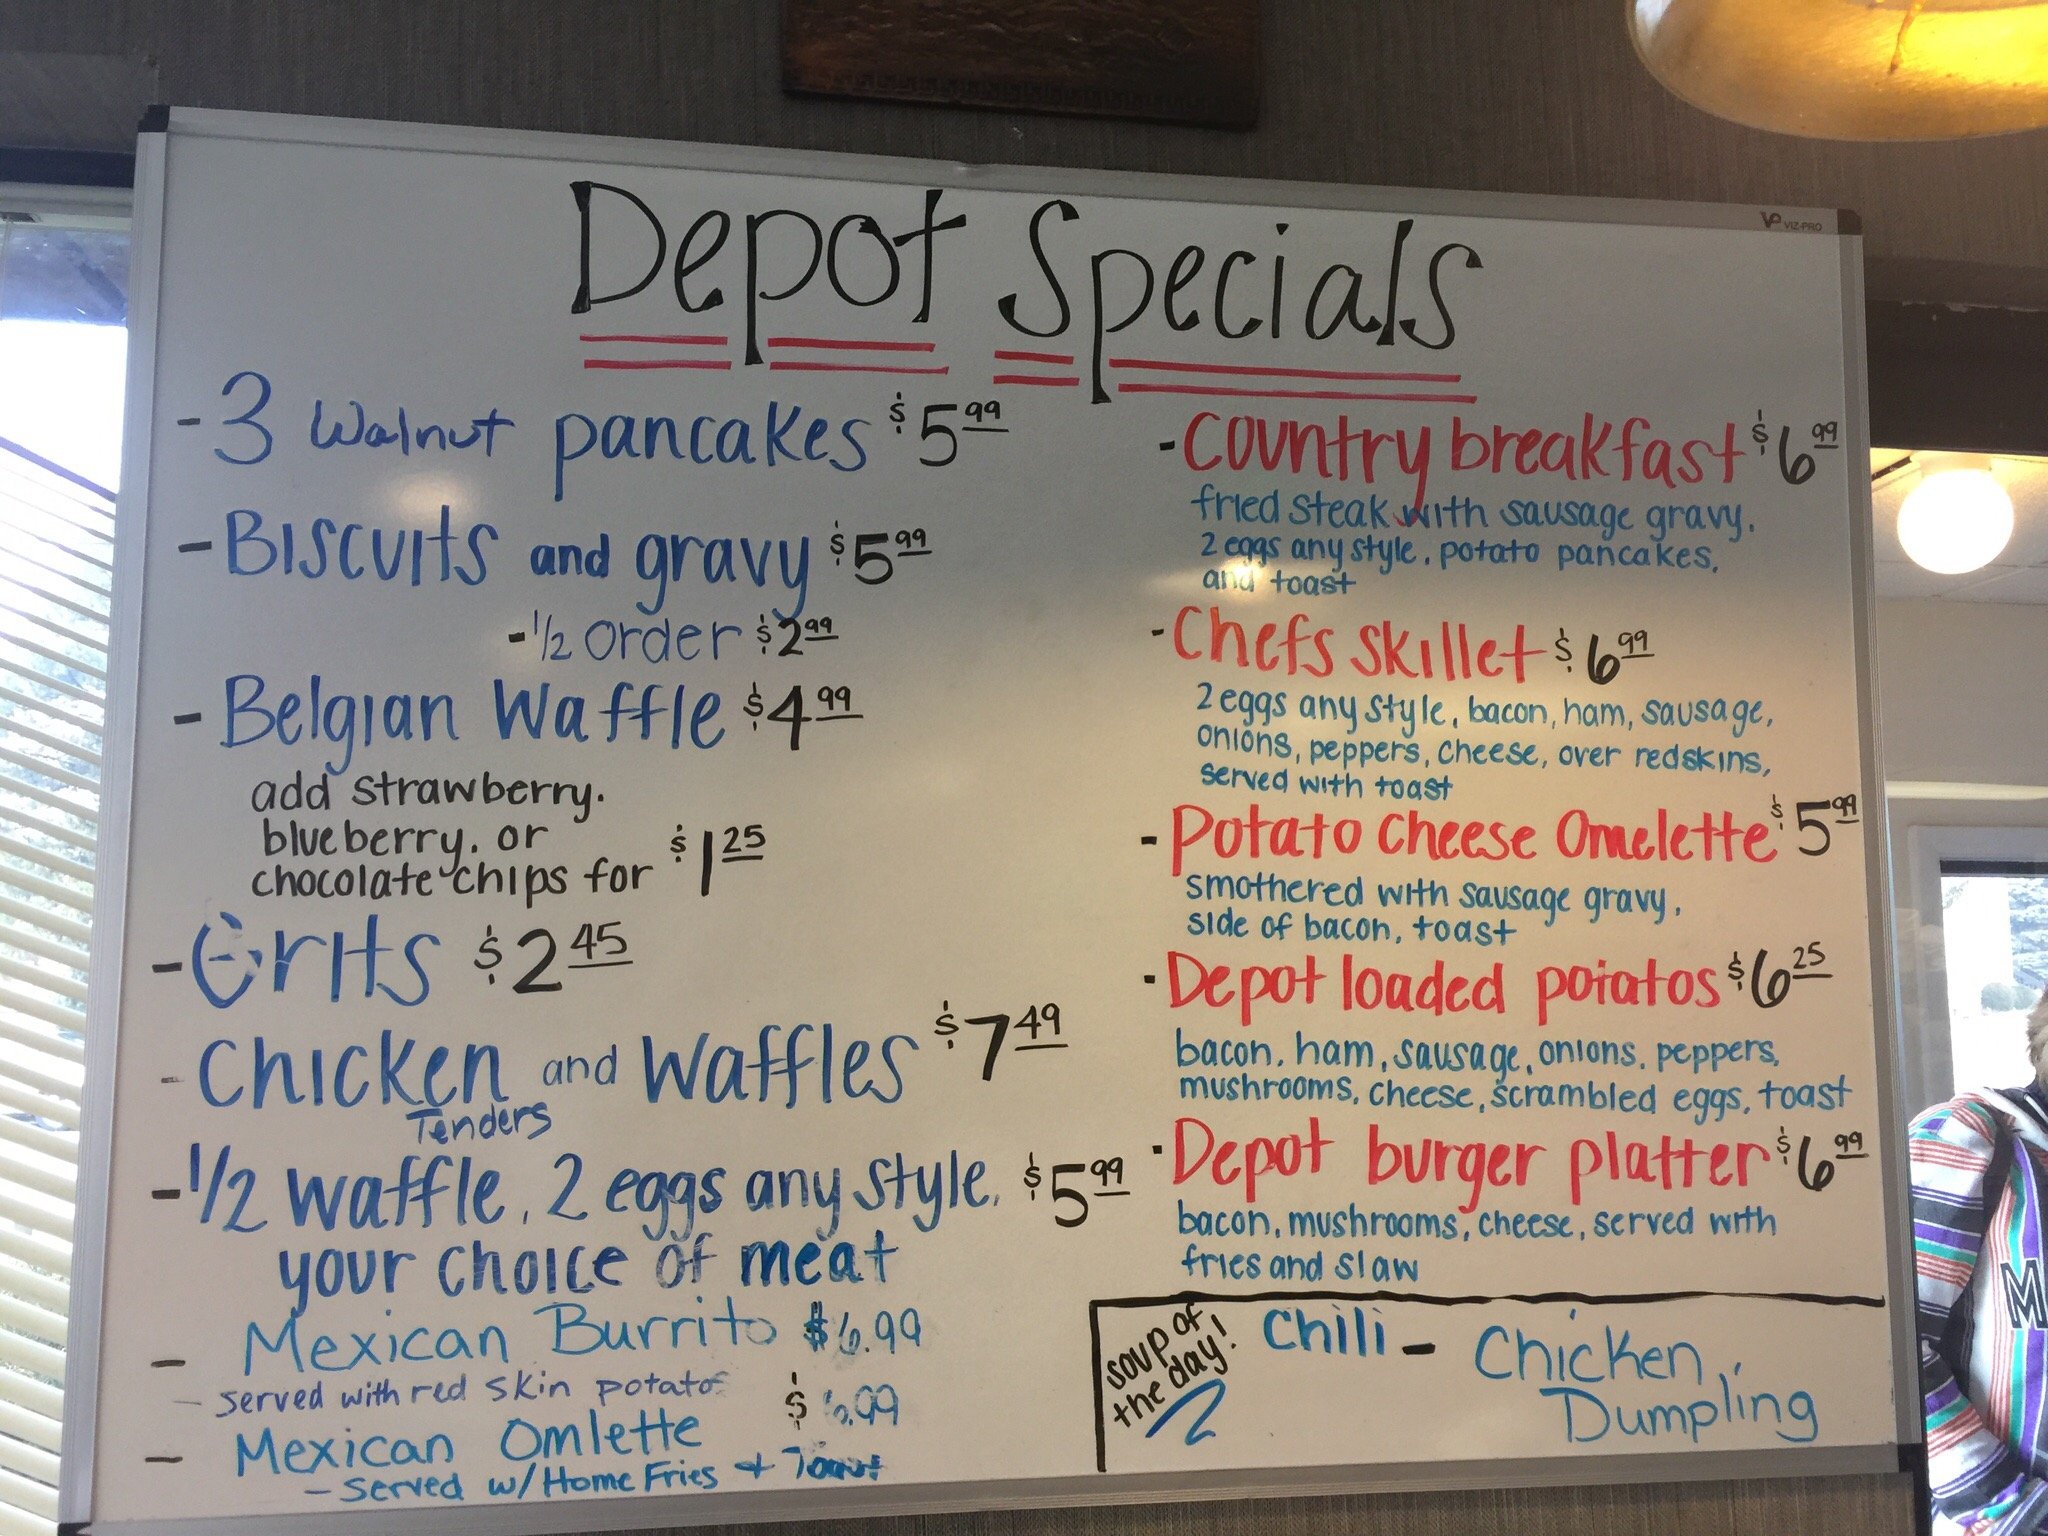 VP VIZ-PRO
Depot Specials
- 3 Walnut pancakes $5.99
- Biscuits and gravy $5.99
- 1/2 order $2.99
- Belgian Waffle $4.99
add strawberry.
blueberry. or
chocolate chips for $1.25
- Grits $2.45
- Chicken and Waffles $7.49
Tenders
- 1/2 waffle, 2 eggs any style, $5.99
your choice of meat
- Mexican Burrito $6.99
- served with red skin potatos
- Mexican Omlette $6.99
- Served w/Home Fries +
- Country breakfast $6.99
fried steak with sausage gravy.
2 eggs any style, potato pancakes,
and toast
- Chefs skillet $6.99
2 eggs any style, bacon, ham, sausage,
onions, peppers, cheese, over redskins,
served with toast
- Potato Cheese Omelette $5.99
smothered with sausage gravy,
side of bacon, toast
- Depot loaded potatos $6.25
bacon, ham, sausage, onions, peppers,
mushrooms, cheese, scrambled eggs, toast
- Depot burger platter $6.99
bacon, mushrooms, cheese, served with
fries and slaw
soup of
the day!
Chili - Chicken
Dumpling
M